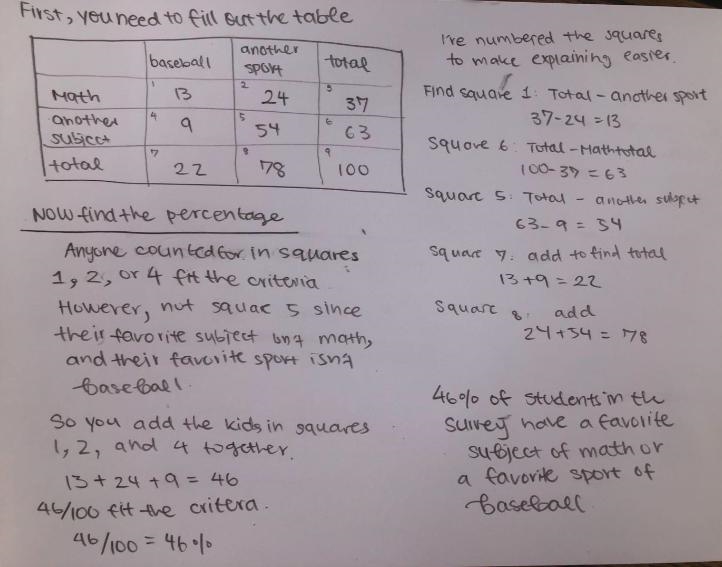 First, you need to fill out the table
baseball another sport total
Math 1 13 2 24 3 37
another subject 4 9 5 54 6 63
total 7 22 8 78 9 100
Now find the percentage
Anyone counted for in squares
1, 2, or 4 fit the criteria
However, not square 5 since
their favorite subject isn't math,
and their favorite sport isn't
baseball.
So you add the kids in squares
1, 2, and 4 together.
13 + 24 + 9 = 46
46/100 fit the critera.
46/100 = 46%
I've numbered the squares
to make explaining easier.
Find square 1: Total - another sport
37-24 = 13
Square 6: Total - Math total
100-37 = 63
Square 5: Total - another subject
63-9 = 54
Square 7: add to find total
13+9 = 22
Square 8: add
24+54 = 78
46% of students in the
survey have a favorite
subject of math or
a favorite sport of
baseball